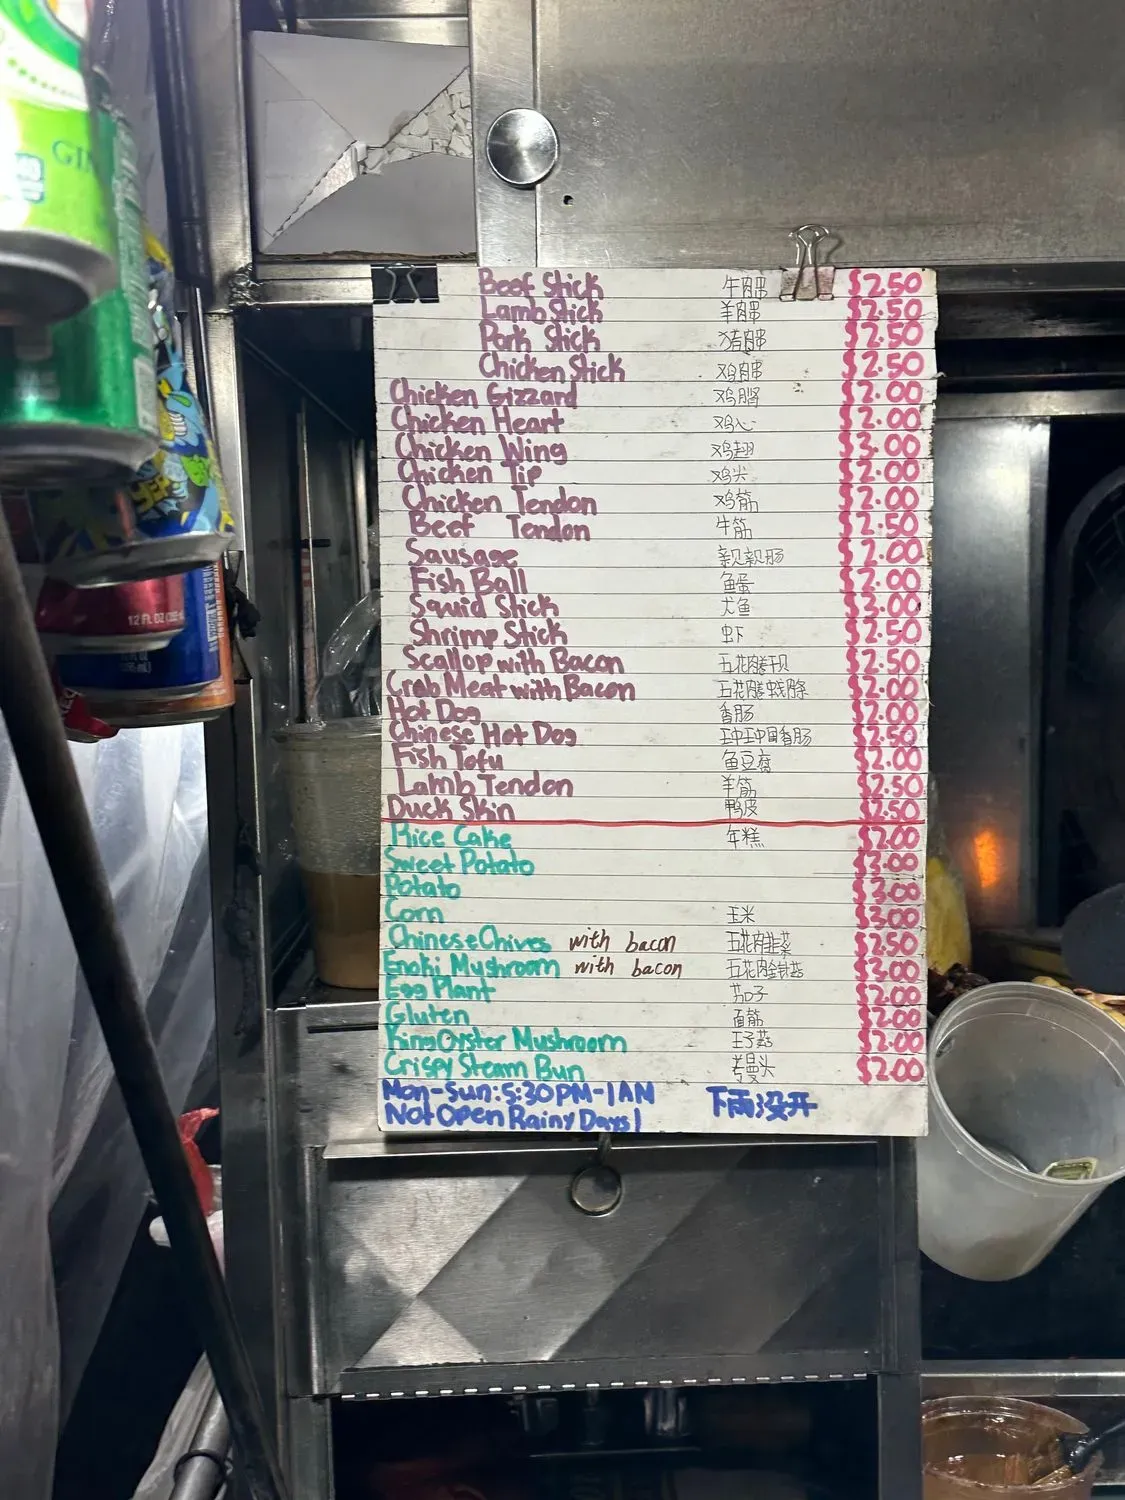 GIN
12 FL OZ (355
Beef Stick 牛肉串 $2.50
Lamb Stick 羊肉串 $2.50
Pork Stick 猪肉串 $2.50
Chicken Stick 鸡肉串 $2.50
Chicken Gizzard 鸡胗 $2.00
Chicken Heart 鸡心 $2.00
Chicken Wing 鸡翅 $3.00
Chicken Tip 鸡尖 $2.00
Chicken Tendon 鸡筋 $2.00
Beef Tendon 牛筋 $2.50
Sausage 亲亲肠 $2.00
Fish Ball 鱼蛋 $2.00
Squid Stick 尤鱼 $3.00
Shrimp Stick 虾 $2.50
Scallop with Bacon 五花肉卷干贝 $2.50
Crab Meat with Bacon $2.00
Hot Dog 香肠 $2.00
Chinese Hot Dog 中国香肠 $2.50
Fish Tofu 鱼豆腐 $2.00
Lamb Tendon 羊筋 $2.50
Duck Skin 鸭皮 $2.50
Rice Cake 年糕 $2.00
Sweet Potato $3.00
Potato $3.00
Corn 玉米 $3.00
Chinese Chives with bacon 五花肉韭菜 $2.50
Enoki Mushroom with bacon 五花肉金针菇 $3.00
Egg Plant 茄子 $2.00
Gluten 面筋 $2.00
King Oyster Mushroom 王子菇 $2.00
Crispy Steam Bun 馒头 $2.00
Mon-Sun: 5:30PM-1AM 下雨没开
Not Open Rainy Days!